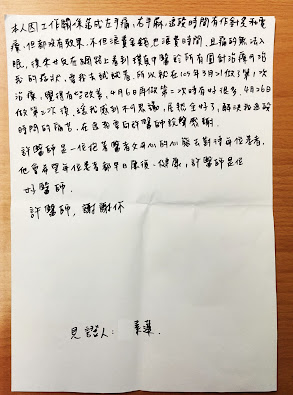 本人因工作關係造成左手痛,右手麻,這段時間有作針炙和電
療,但都沒有效果,不但浪費金錢也浪費時間,且痛的無法入
眠,後來女兒在網路上看到 醫師所有圓針治療可治
我的症狀,當我來試試看,所以就在105年3月21做了第1次
治療,覺得有些改善,4月6日再做第二次時有好很多,4月26日
做第三次後,讓我感到不可思議,居然全好了,解決我這段
時間的痛苦,在這我要向許醫師致謝感謝.
許醫師是一位把著醫者父母心的心態去對待每位患者,
他會希望每位患者都早日康復、健康,許醫師是個
好醫師.
許醫師,謝謝你
見證人: 美蓮